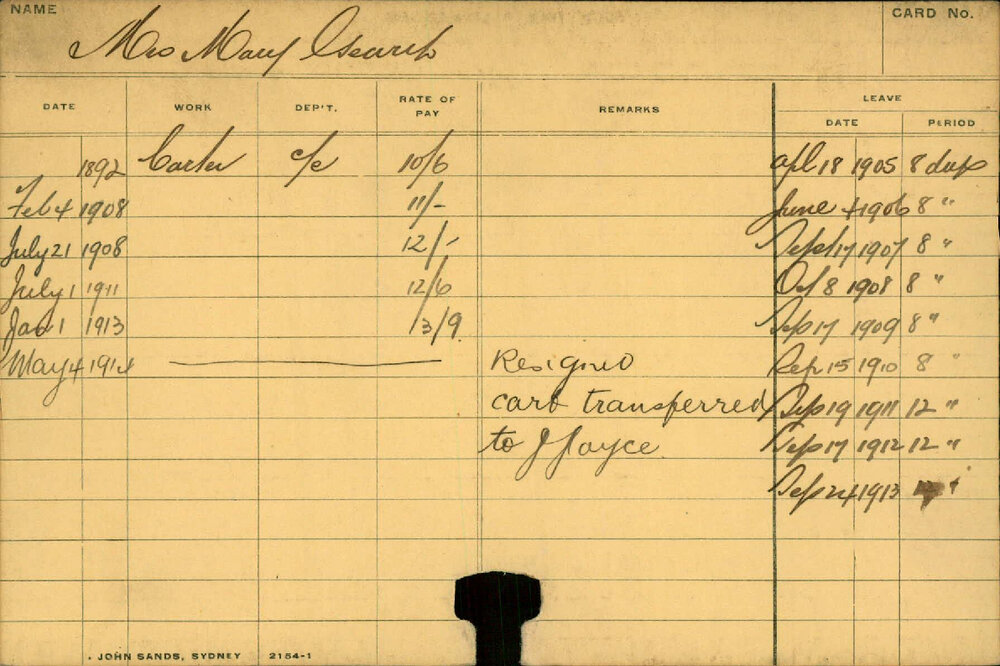 NAME
CARD No.
Mrs Mary
DATE WORK DEP'T. RATE OF PAY REMARKS LEAVE
DATE PERIOD
1892 Carter c/e 10/6 Apl 18 1905 8 days
Feb 4 1908 11/- June 4 1906 8 "
July 21 1908 12/- Sept 17 1907 8 "
July 1 1911 12/6 Oct 8 1908 8 "
Jan 1 1913 13/9 Sep 17 1909 8 "
May 4 1914 Resigned Sep 15 1910 8 "
card transferred Sep 19 1911 12 "
to J Joyce Sep 17 1912 12 "
Sep 24 1913
JOHN SANDS, SYDNEY 2154-1